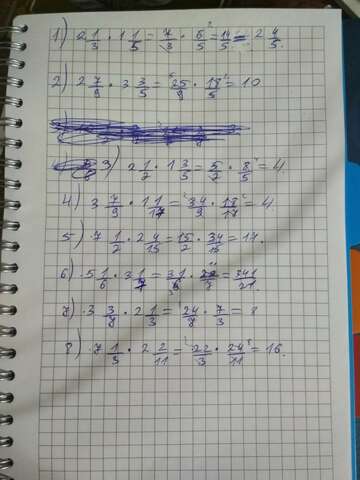 1) 2 1/3 · 1 1/5 = 7/3 · 6/5 = 14/5 = 2 4/5.
2) 2 7/9 · 3 3/5 = 25/9 · 18/5 = 10
3) 2 1/2 · 1 3/5 = 5/2 · 8/5 = 4.
4) 3 7/9 · 1 1/17 = 34/9 · 18/17 = 4.
5) 7 1/2 · 2 4/15 = 15/2 · 34/15 = 17.
6) 5 1/6 · 3 1/7 = 31/6 · 22/7 = 341/21.
7) 3 3/7 · 2 1/3 = 24/7 · 7/3 = 8
8) 7 1/3 · 2 2/11 = 22/3 · 24/11 = 16.